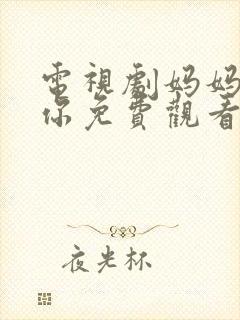 電視劇妈妈
你免費觀看
夜光杯